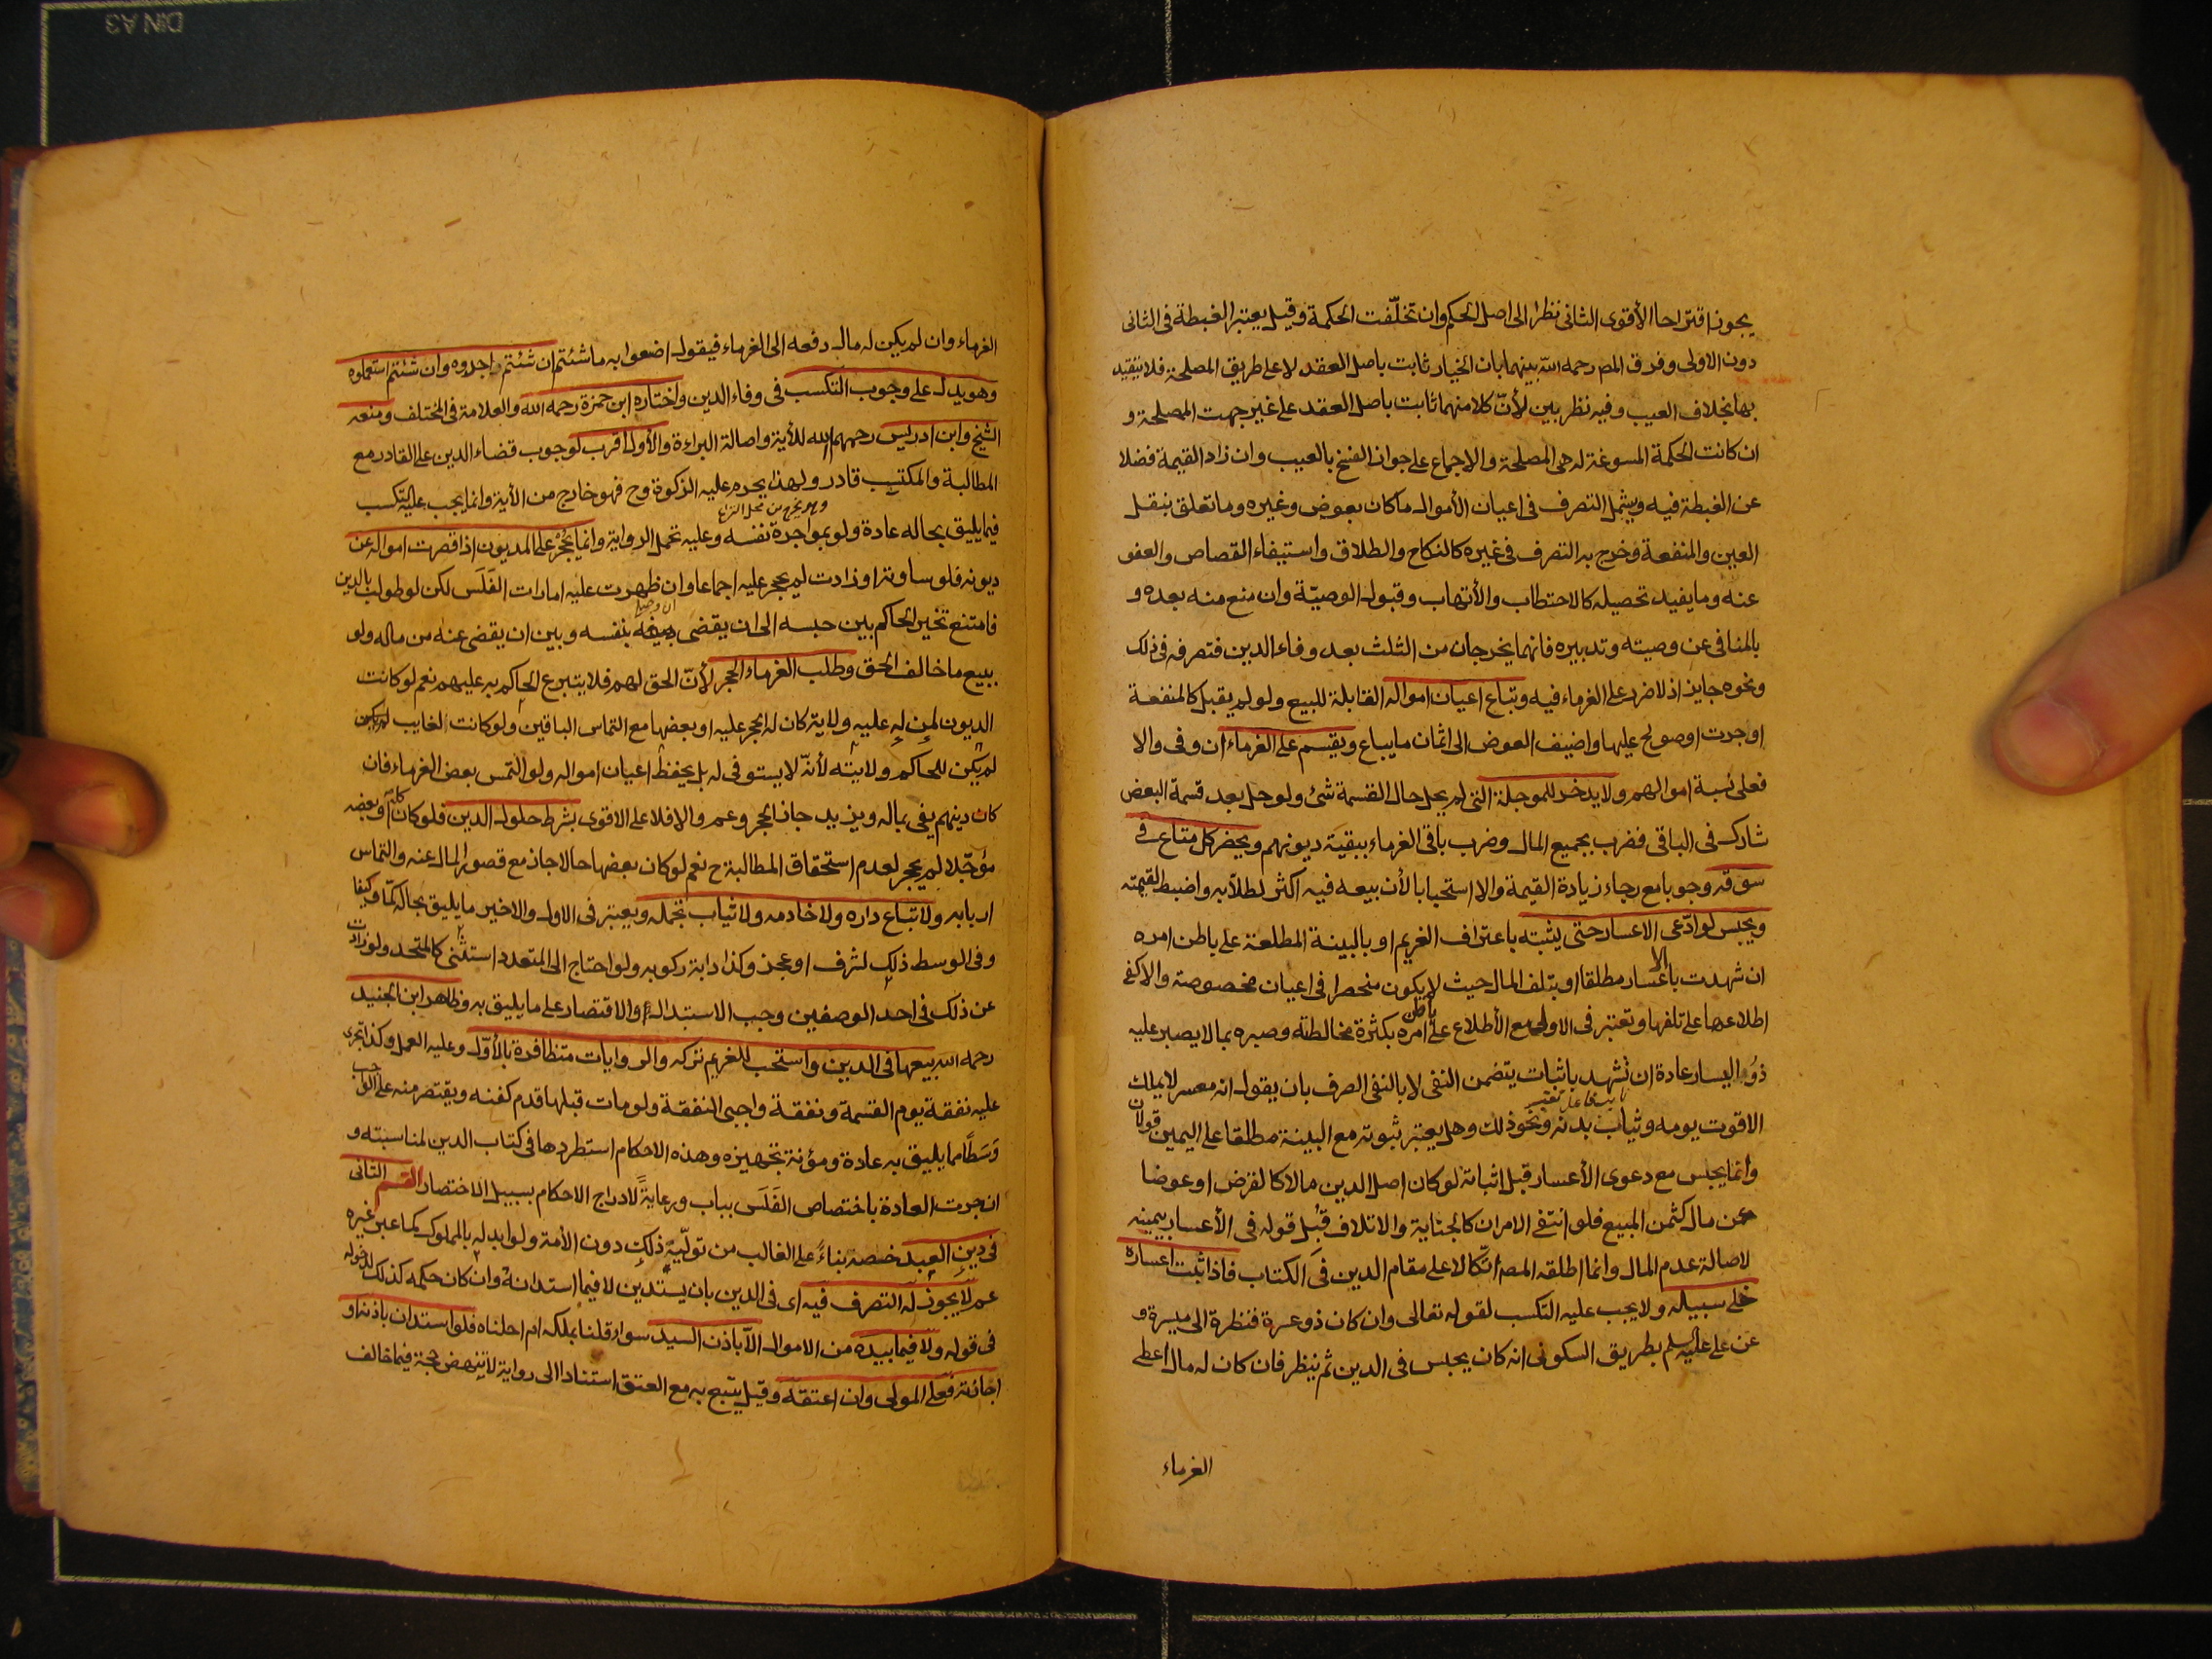 يجوز اقتراحا الأقوى الثانى نظرا الى اصل الحكم وان تخلّفت الحكمة وقيل يعتبر الغبطة فى الثانى
دون الاولى وفرق المص رحمه الله بينهما بان الخيار ثابت باصل العقد لا على طريق المصلحة فلا يتقيد
بها بخلاف العيب وفيه نظر بين لأنّ كلا منهما ثابت باصل العقد على غير جهت المصلحة و
ان كانت الحكمة المسوغة له هى المصلحة والاجماع على جواز الفسخ بالعيب وان زاد القيمة فضلا
عن الغبطة فيه ويشمل التصرف فى اعيان الأموال ما كان بعوض وغيره وما تعلق بنقل
العين والمنفعة وخرج به التصرف فى غيره كالنكاح والطلاق واستيفاء القصاص والعفو
عنه وما يفيد تحصيله كالاحتطاب والأتهاب وقبول الوصيّة وان منع منه بعده و
بالمنافى عن وصيته وتدبيره فانهما يخرجان من الثلث بعد وفاء الدين فتصرفه فى ذلك
ونحوه جايز اذ لا ضرر على الغرماء فيه وتباع اعيان امواله القابلة للبيع ولو لم يقبل كالمنفعة
اوجرت او صولح عليها واضيف العوض الى اثمان ما يباع ويقسم على الغرماء ان وفى والا
فعلى نسبة اموالهم ولا يدخر للموجلة التى لم يحل حال القسمة شئ ولو حل بعد قسمة البعض
شارك فى الباقى فضرب بجميع المال وضرب باقى الغرماء ببقيّة ديونهم ويحضر كل متاع فى
سوقه وجوبا مع رجاء زيادة القيمة والا استحبابا لأن بيعه فيه اكثر لطلّابه واضبط لقيمته
ويحبس لو ادّعى الاعسار حتى يثبته باعتراف الغريم او بالبينة المطلعة على باطن امره
ان شهدت بالاعسار مطلقا او بتلف المال حيث لا يكون منحصرا فى اعيان مخصوصة والا كفى
اطلاعها على تلفها وتعتبر فى الاولى مع الأطلاع على باطن امره بكثرة مخالطته وصبره بما لا يصبر عليه
ذوُ اليسار عادة ان تشهد باثبات يتضمن النفى لا بالنفى الصرف بان يقول انه معسر لا يملك
الا قوت يومه وثياب بدنه ونحو ذلك وهل يعتبر ثبوته مع البينة مطلقا على اليمين قولان
وانما يحبس مع دعوى الأعسار قبل اثباته لو كان اصل الدين مالا كالقرض او عوضا
عن مال كثمن المبيع فلو انتفى الامران كالجناية والاتلاف قبُل قوله فى الأعسار بيمينه
لاصالة عدم المال وانما اطلقه المص اتكالا على مقام الدين فى الكتاب فاذا ثبت اعساره
خلى سبيله ولا يجب عليه التكسب لقوله تعالى وان كان ذو عسرة فنظرة الى ميسرة و
عن على عليه السلم بطريق السكونى انه كان يحبس فى الدين ثم ينظر فان كان له مال اعطى
الغرماء
الغرماء وان لم يكن له مال دفعه الى الغرماء فيقول اضعوا به ما شئتم ان شئتم اجروه وان شئتم استعملوه
وهو يدل على وجوب التكسب فى وفاء الدين واختاره ابن حمزة رحمه الله والعلامة فى المختلف ومنعه
الشيخ وابن ادريس رحمهم الله للأية واصالة البراءة والأول اقرب لوجوب قضاء الدين على القادر مع
المطالبة والمكتسب قادر ولهذا يحرم عليه الزكوة وح فهو خارج من الأية وانما يجب عليه التكسب
فيما يليق بحاله عادة ولو بمواجرة نفسه وعليه تحمل الرواية وانما يحجر على المديون اذا قصرت امواله عن
ديونه فلو ساوته او زادت لم يحجر عليه اجماعا وان ظهرت عليه امارات الفَلَس لكن لو طولب بالدين
فامتنع تخير الحاكم بين حبسه الى ان يقضى بنفسه وبين ان يقضى عنه من ماله ولو
ببيع ما خالف الحق وطلب الغرماء الحجر لأنّ الحق لهم فلا يتبرع الحاكم به عليهم نعم لو كانت
الديون لمن له عليه ولاية كان له الحجر عليه او بعضها مع التماس الباقين ولو كانت لغايب
لم يكن للحاكم ولايته لأنه لا يستوفى له بل يحفظ اعيان امواله ولو التمس بعض الغرماء فان
كان دينهم يفى بماله ويزيد جاز الحجر وعم والا فلا على الاقوى بشرط حلول الدين فلو كان كله او بعضه
مؤجّلا لم يحجر لعدم استحقاق المطالبة ح نعم لو كان بعضها حالا جاز مع قصور المال عنه والتماس
اربابه ولا تباع داره ولا خادمه ولا ثياب تجمله ويعتبر فى الاول والاخير ما يليق بحاله كمّا وكيفا
وفى الوسط ذلك لشرف او عجز وكذا دابة ركوبه ولو احتاج الى المتعدد استثنى كالمتحد ولو زادت
عن ذلك فى احد الوصفين وجب الاستبدال والاقتصار على ما يليق به وظاهر ابن الجنيد
رحمه الله بيعها فى الدين واستحب للغريم تركه والروايات متظافرة بالأوّل وعليه العمل وكذا تجرى
عليه نفقة يوم القسمة ونفقة واجبى النفقة ولو مات قبلها قدم كفنه ويقتصر منه على الواجب
وَسَطًا مما يليق به عادة ومؤنة تجهيزه وهذه الاحكام استطردها فى كتاب الدين لمناسبته و
ان جرت العادة باختصاص الفَلَس بباب ورعايةً لادراج الاحكام بسبيل الاختصار القسم الثانى
فى دين العبد خصه بناءً على الغالب من تولّيه ذلك دون الأمة ولو ابدله بالمملوك كما عبر غيره
عم لا يجوز له التصرف فيه اى فى الدين بان يستدين لا فيما استدانه وان كان حكمه كذلك لدخوله
فى قوله ولا فيما بيده من الاموال الّا باذن السيد سواء قلنا بملكه ام احلناه فلو استدان باذنه او
اجازته فعلى المولى وان اعتقه وقيل يتبع به مع العتق استنادا الى رواية لا تنهض حجة فيما خالف